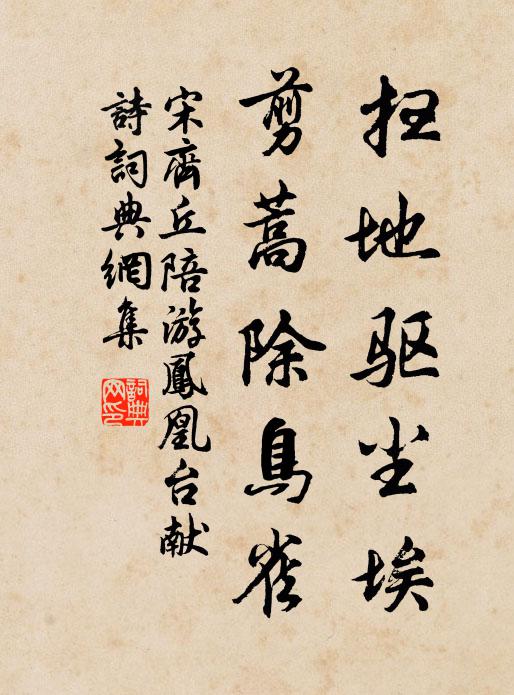 扫地驱尘埃
剪蒿除鸟雀
宋齊丘陪游鳳凰台献
詩詞典網集
詞典網印